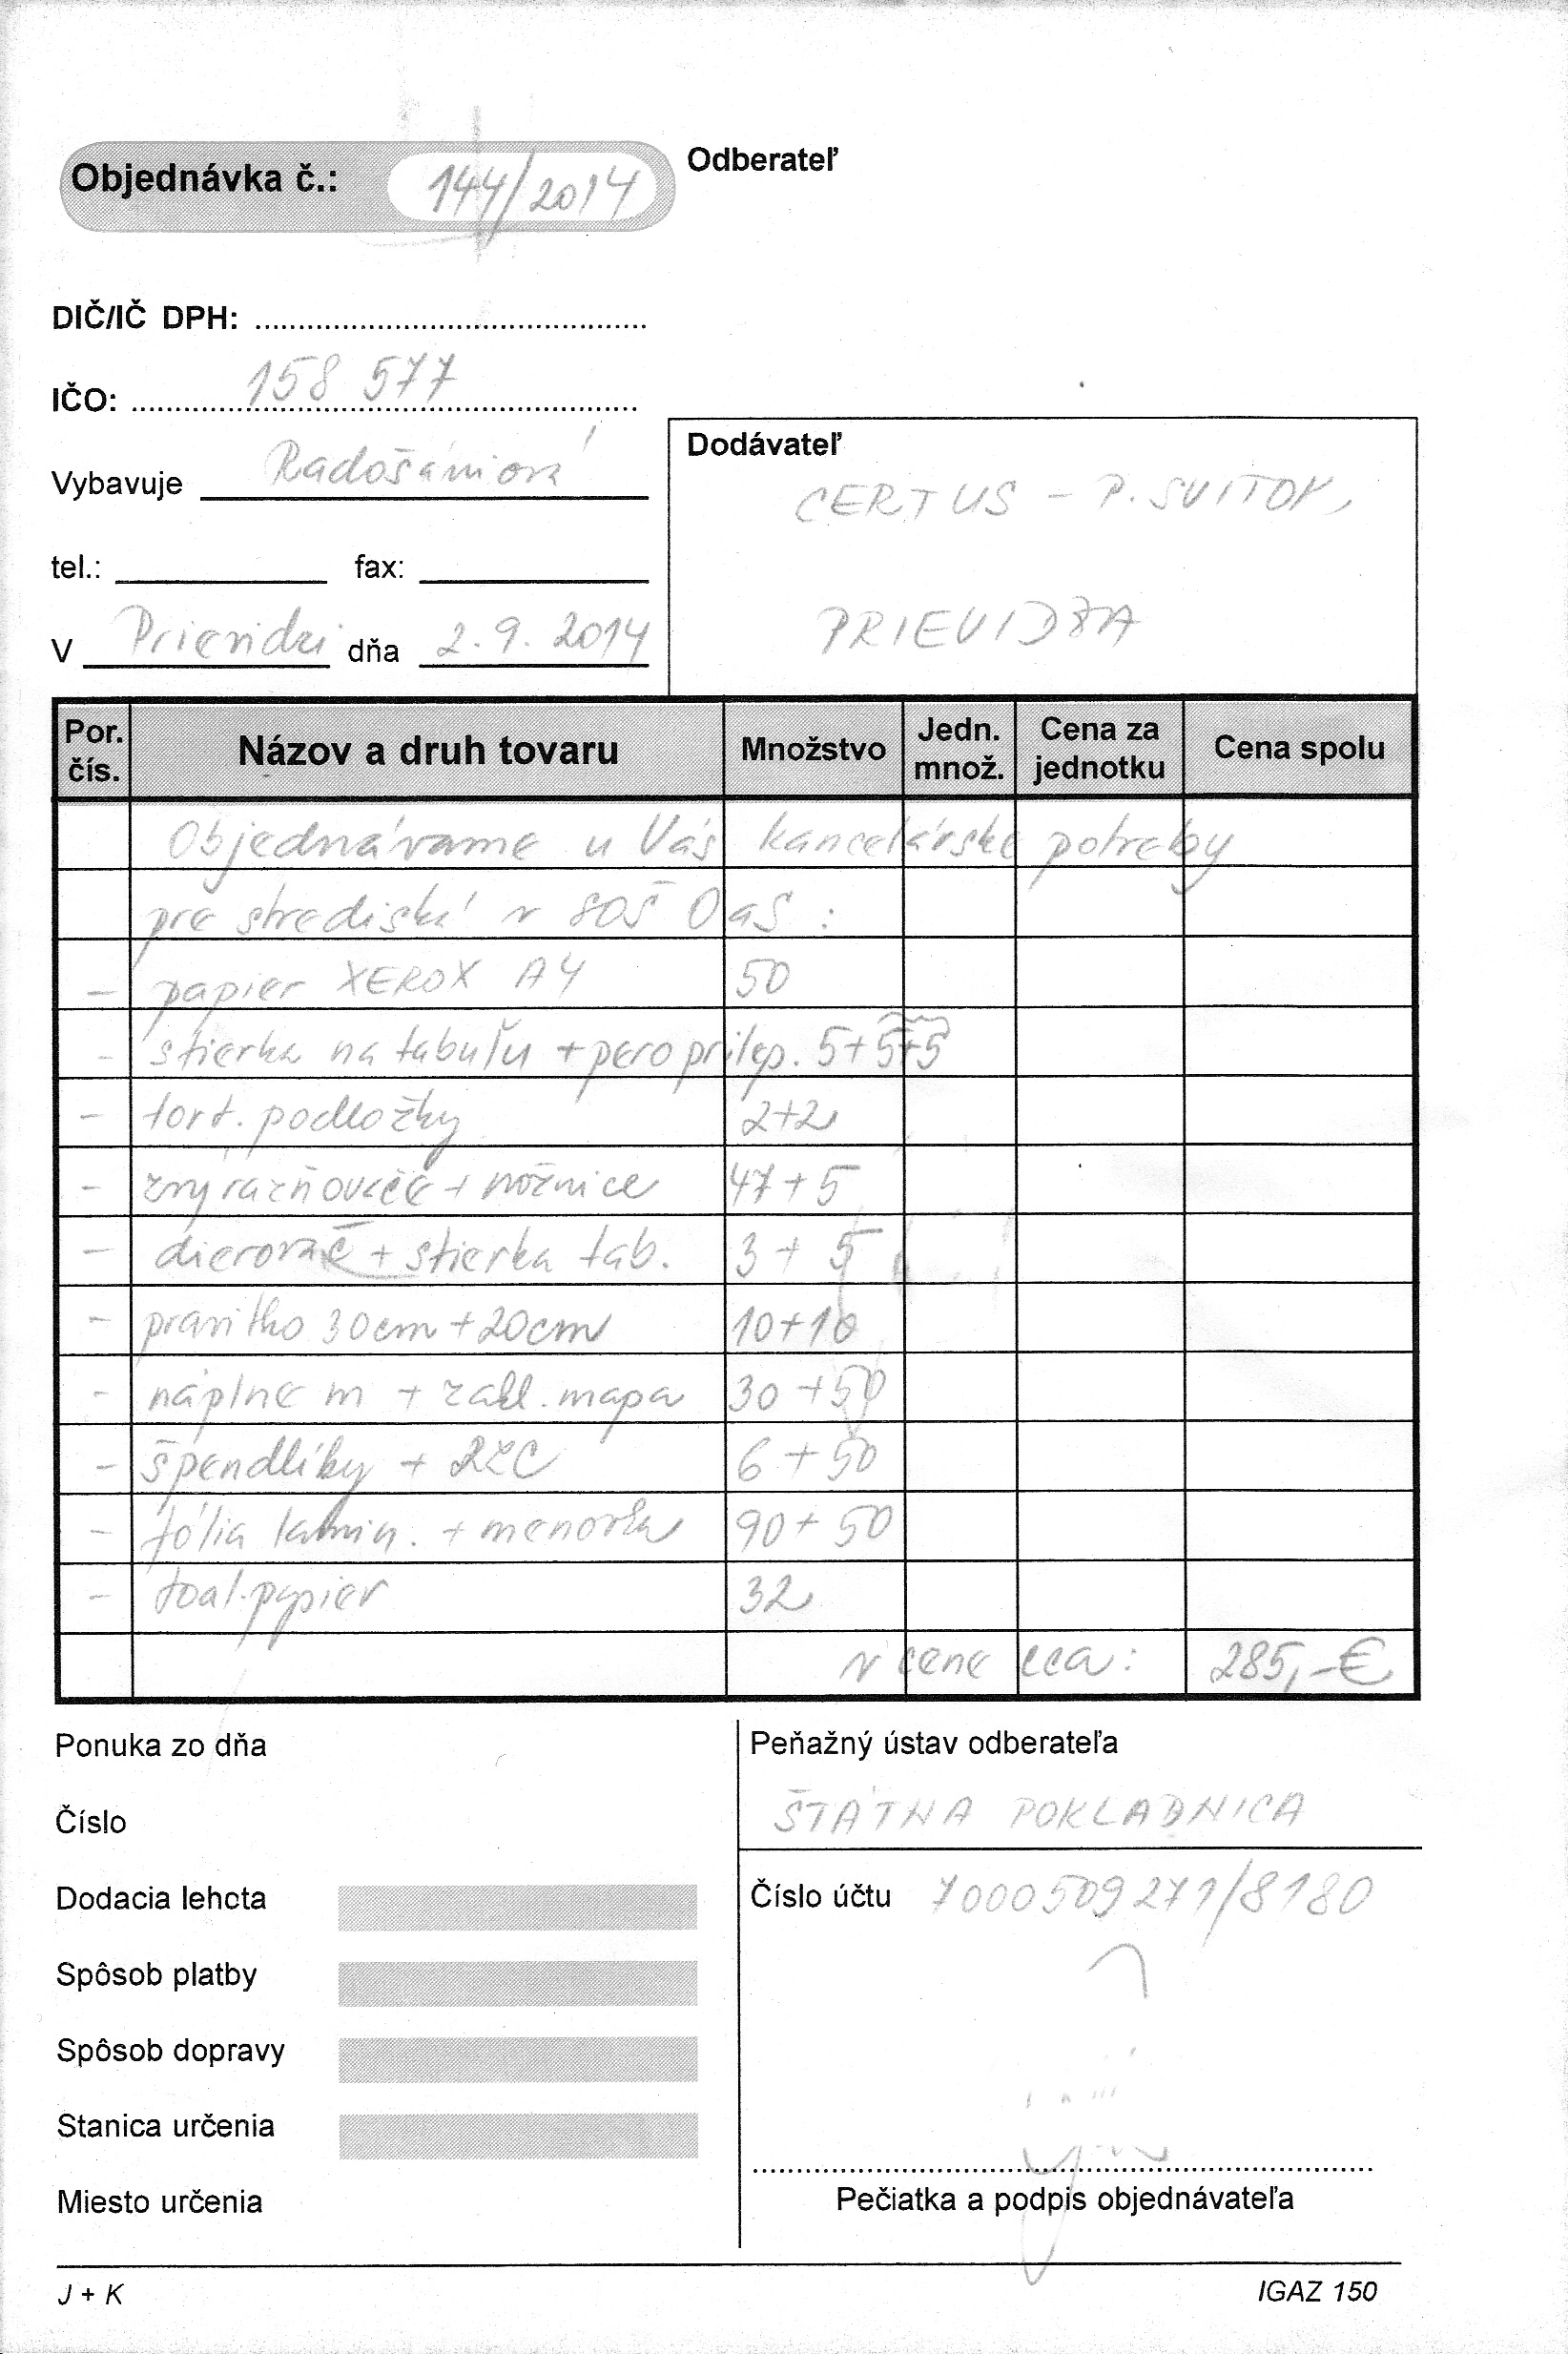 Objednávka č.: 144/2014
Odberateľ
DIČ/IČ DPH:
IČO: 158 577
Vybavuje Radošániová
tel.: fax:
V Prievidzi dňa 2.9.2014
Dodávateľ
CERTUS - P. SVITOK,
PRIEVIDZA
Por. čís. Názov a druh tovaru Množstvo Jedn. množ. Cena za jednotku Cena spolu
Objednávame u Vás kancelárske potreby
pre strediská v SOŠ OaS :
- papier XEROX A4 50
- stierka na tabuľu + pero prilep. 5+5+5
- tort. podložky 2+2
- zvýrazňovače + nožnice 47+5
- dierovač + stierka tab. 3+5
- pravítko 30cm + 20cm 10+10
- náplne m + zakl. mapa 30+50
- špendlíky + 6+50
- fólia lamin. + menovka 90+50
- toal. papier 32
v cene cca: 285,-€
Ponuka zo dňa
Číslo
Dodacia lehcta
Spôsob platby
Spôsob dopravy
Stanica určenia
Miesto určenia
Peňažný ústav odberateľa
ŠTÁTNA POKLADNICA
Číslo účtu 7000509271/8180
Pečiatka a podpis objednávateľa
J + K
IGAZ 150